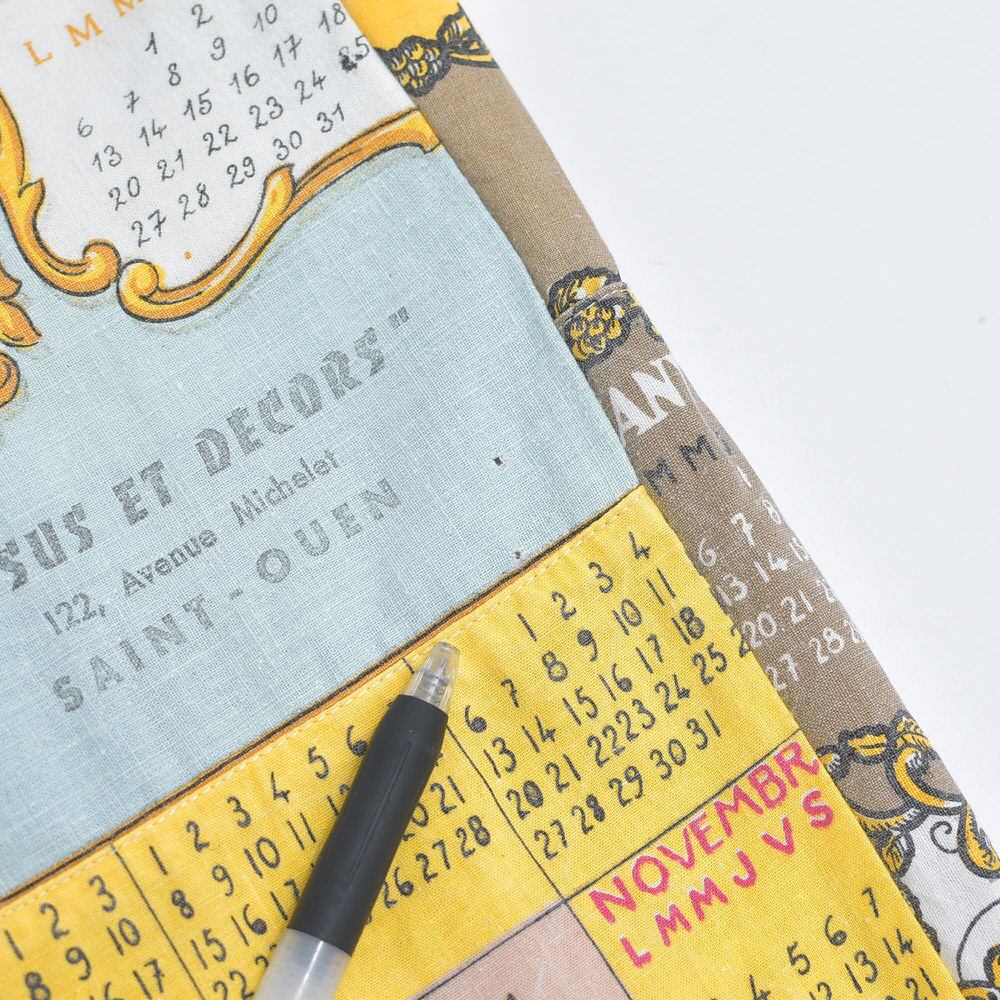 L M M
1 2
8 9 10 18
6 7 16 17 25
13 14 15 23 24
20 21 22 30 31
27 28 29
SUS ET DECORS"
122, Avenue Michelet
SAINT-OUEN
ANV
M M
6 7 8
13 14 15
20 21 2
27 28 2
1 2 3 4
6 7 8 9 10 11
13 14 15 16 17 18
20 21 22 23 24 25
27 28 29 30 31
1 2 3 4 5 6
8 9 10 11 12
15 16 17 20 21
22 26 27 28
1 2 3
8 9 10
16 17
NOVEMBR
L M M J V S
4 5 6 7
12 13 14